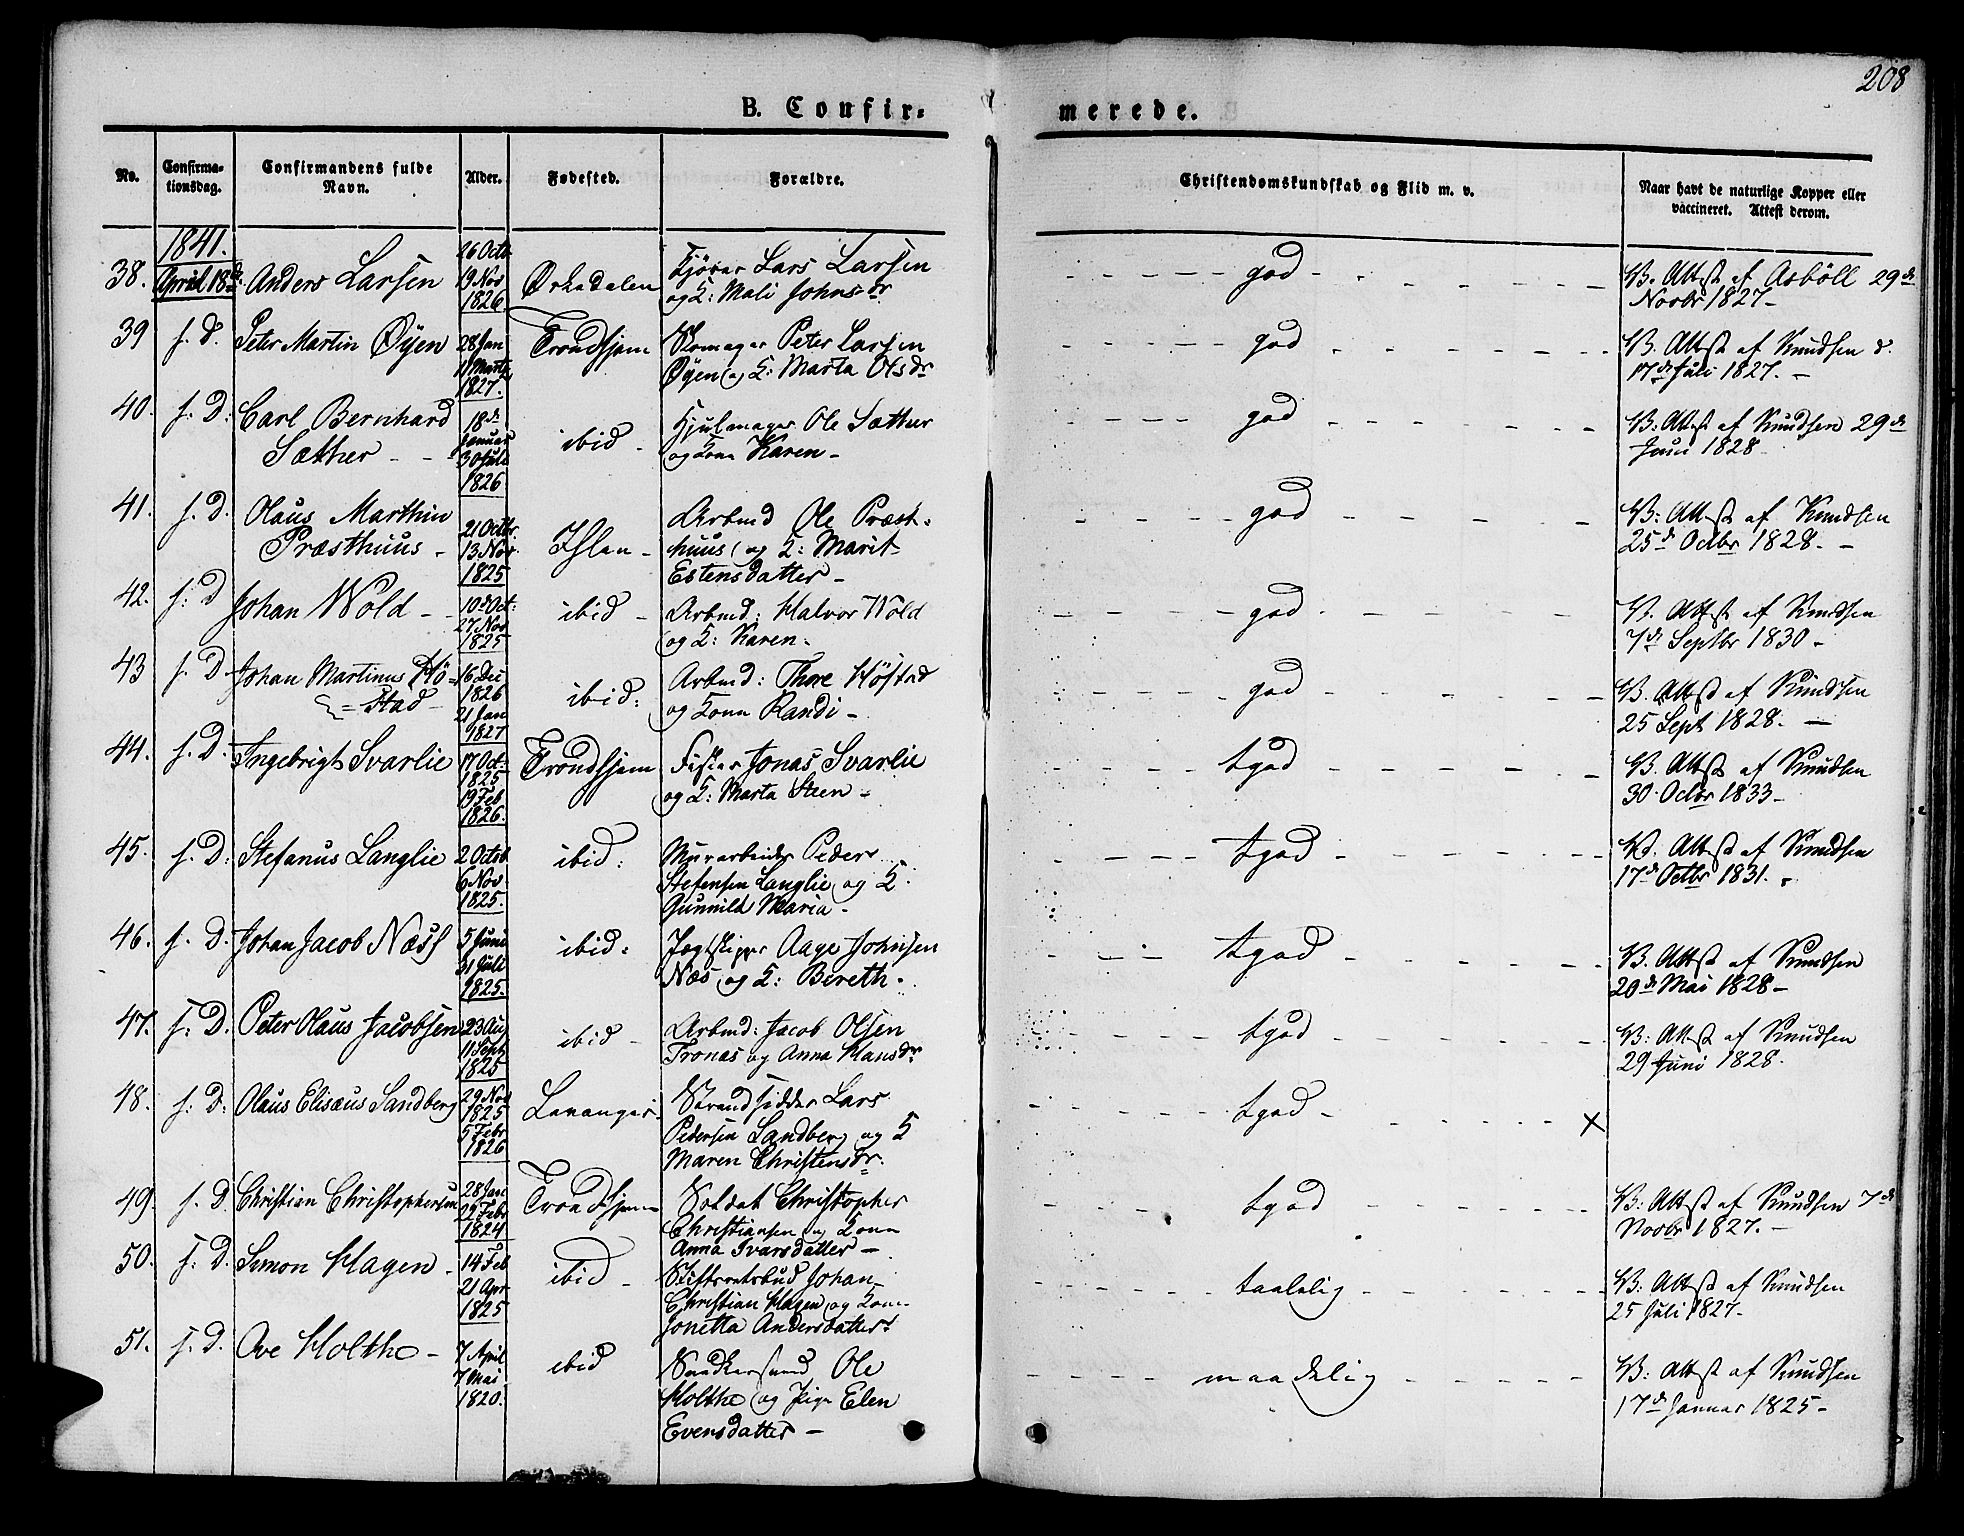 208
B. Confirmerede.
No.
Confirmationsdag.
Confirmandens fulde Navn.
Alder.
Fødested.
Forældre.
Christendomskundskab og Flid m. v.
Naar havt de naturlige Kopper eller vaccineret. Attest derom.
1841.
38. April 18de Anders Larsen 26 Octb 19 Nov 1826 Orkedalen Kjører Lars Larsen
og K: Mali Johnsdr
god
V. Attest af Asböll 29de
Novbr 1827.
39 s. D. Peter Martin Øyen 28 Jan 11 Marts 1827. Trondhjem Skomager Peter Larsen
Øyen og K: Marta Olsdr
god
V. Attest af Knudsen d.
17de Juli 1827.
40. s. D. Carl Bernhard
Sæther 18de Januar 30 Juli 1826 ibid Hjulmager Ole Sæther
og Kone Karen
god
V: Attest af Knudsen 29de
Juni 1828
41. s. D. Olaus Marthin
Præsthuus 21 Octbr. 13 Nov. 1825 Ihlen Arbmd Ole Præst-
huus og K: Marit
Estensdatter
god
V: Attest af Knudsen
25de Octbr 1828.
42. s: D Johan Wold 10de Oct: 27 Nov 1825 ibid Arbmd: Halvor Wold
og K: Karen.
god
V. Attest af Knudsen
7de Septbr 1830
43 s. D Johan Martinus Hö-
stad 16 Dec 1826 21 Jan 1827 ibid: Arbmd: Thore Höstad
og Kone Randi
god
V. Attest af Knudsen
25 Sept 1828.
44. s. D. Ingebrigt Svarlie 17 Oct. 1825 19 Feb 1826. Trondhjem Fisker Jonas Svarlie
og K: Marta Steen
tgod
V. Attest af Knudsen
30 Octbr 1833
45. s. D: Stefanus Langlie 2 Octob 6 Nov 1825. ibid: Murarbeider Peder
Stefensen Langlie og K.
Gunnild Maria
tgod
V. Attest af Knudsen
17de Octbr 1831.
46. s. D. Johan Jacob Næss 5 Juni 31 Juli 1825. ibid: Jagtskipper Aage Johnsen
Næs og K: Bereth.
tgod
V. Attest af Knudsen
20de Mai 1828
47. s. D. Peter Olaus Jacobsen 23 Aug 11 Sept 1825 ibid Arbmd: Jacob Olsen
Tronæs og Anna Hansdr
tgod
V: Attest af Knudsen
29 Juni 1828.
48. s: D. Olaus Elisæus Sandberg 29 Nov 1825 5 Febr 1826 Levanger Strandsidder Lars
Pedersen Sandberg og K
Maren Christensdr.
tgod
X
49. s. D Christian Christophersen 28 Jan 29 Febr 1824 Trondhjem Soldat Christopher
Christiansen og Kone
Anna Ivarsdatter
tgod
V: Attest af Knudsen 7de
Novbr 1827.
50. s: D. Simon Hagen 14 Feb 21 Apr 1825 ibid Stiftsretsbud Johan
Christian Hagen og Kone
Jonetta Andersdatter
taalelig
V: Attest af Knudsen
25 Juli 1827
51. s. D. Ove Holthe 7 April 7 Mai 1820. ibid Ole
Holthe og Pige Elen
Evensdatter
maadelig
V: Attest af Knudsen
17de Januar 1825